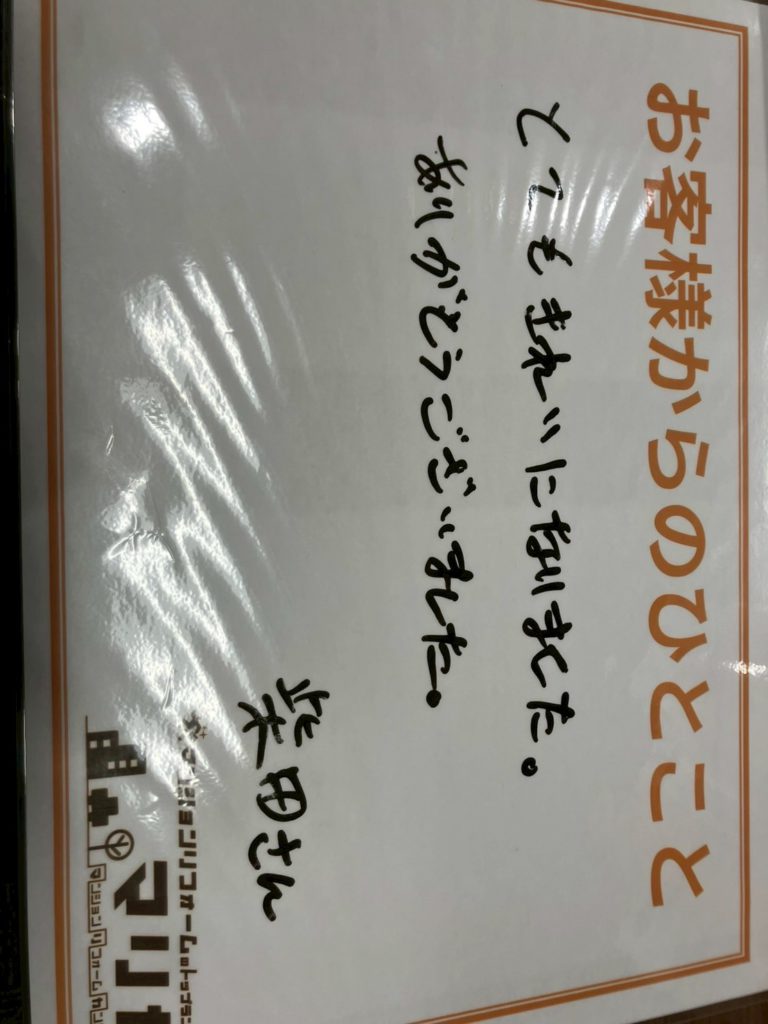 お客様からのひとこと
とてもきれいになりました。
ありがとうございました。
柴田さん
マンションリフォームの
マリ
マンションリフォーム